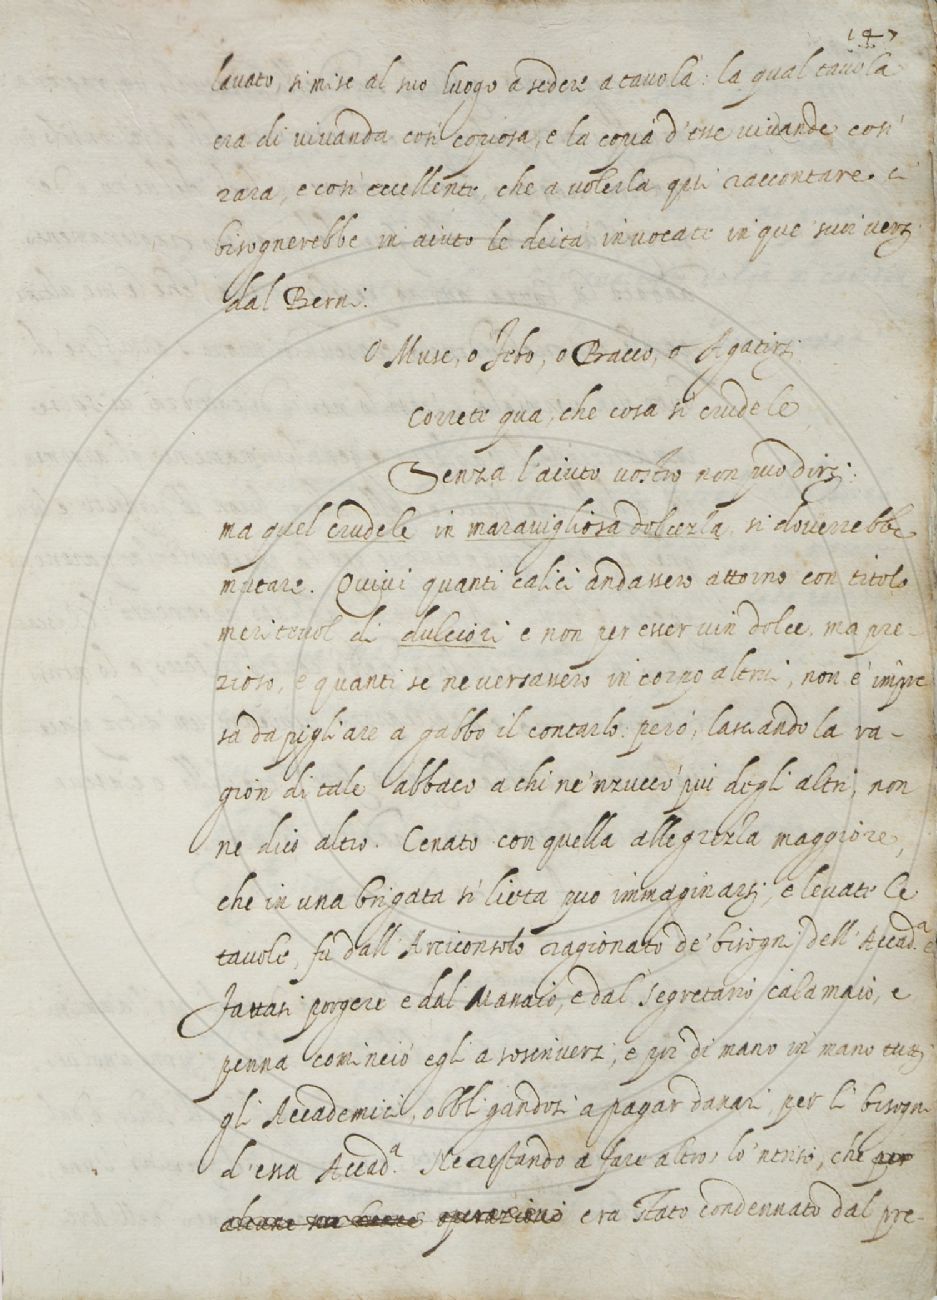 147
lavato, si mise al suo luogo a sedere a tavola: la qual tavola
era di vivanda così copiosa, e la copia d'esse vivande così
rara, e così eccellente, che a volerla qui raccontare ci
bisognerebbe in aiuto le deità invocate in que' suoi versi
dal Berni:
O Muse, o Febo, o Bacco, o Agatirsi
Correte qua, che cosa sì crudele
Senza l'aiuto vostro non può dirsi:
ma quel crudele in maravigliosa dolcezza si doverrebbe
mutare. Quivi quanti calici andassero attorno con titolo
meritevol di dulciori e non per esser vin dolce, ma pre-
zioso, e quanti se ne versassero in corpo altrui, non è impre
sa da pigliare a gabbo il contarlo: però, lasciando la ra-
gion di tale abbaco a chi ne 'nzuccò più degli altri, non
ne dico altro. Cenato con quella allegrezza maggiore,
che in una brigata sì lieta può immaginarsi, e levate le
tavole, fù dall'Arciconsolo ragionato de' bisogni dell'Accad.ª e
Fattasi porgere e dal Massaio, e dal Segretario calamaio, e
penna cominciò egli a soscriversi, e poi di mano in mano tutti
gli Accademici, obbligandosi a pagar danari, per li bisogni
d'essa Accad.ª Ne restando a fare altro, lo 'nferigno, che per
operazioni era stato condennato dal pre-